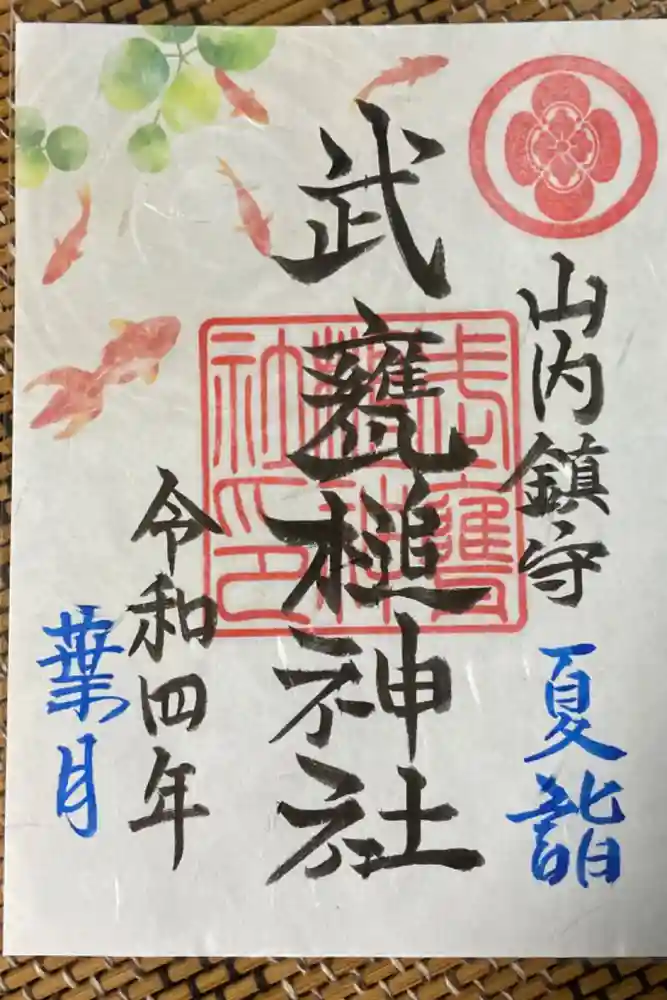 山内鎮守
夏詣
武甕槌神社
武甕槌神社之印
令和四年
葉月